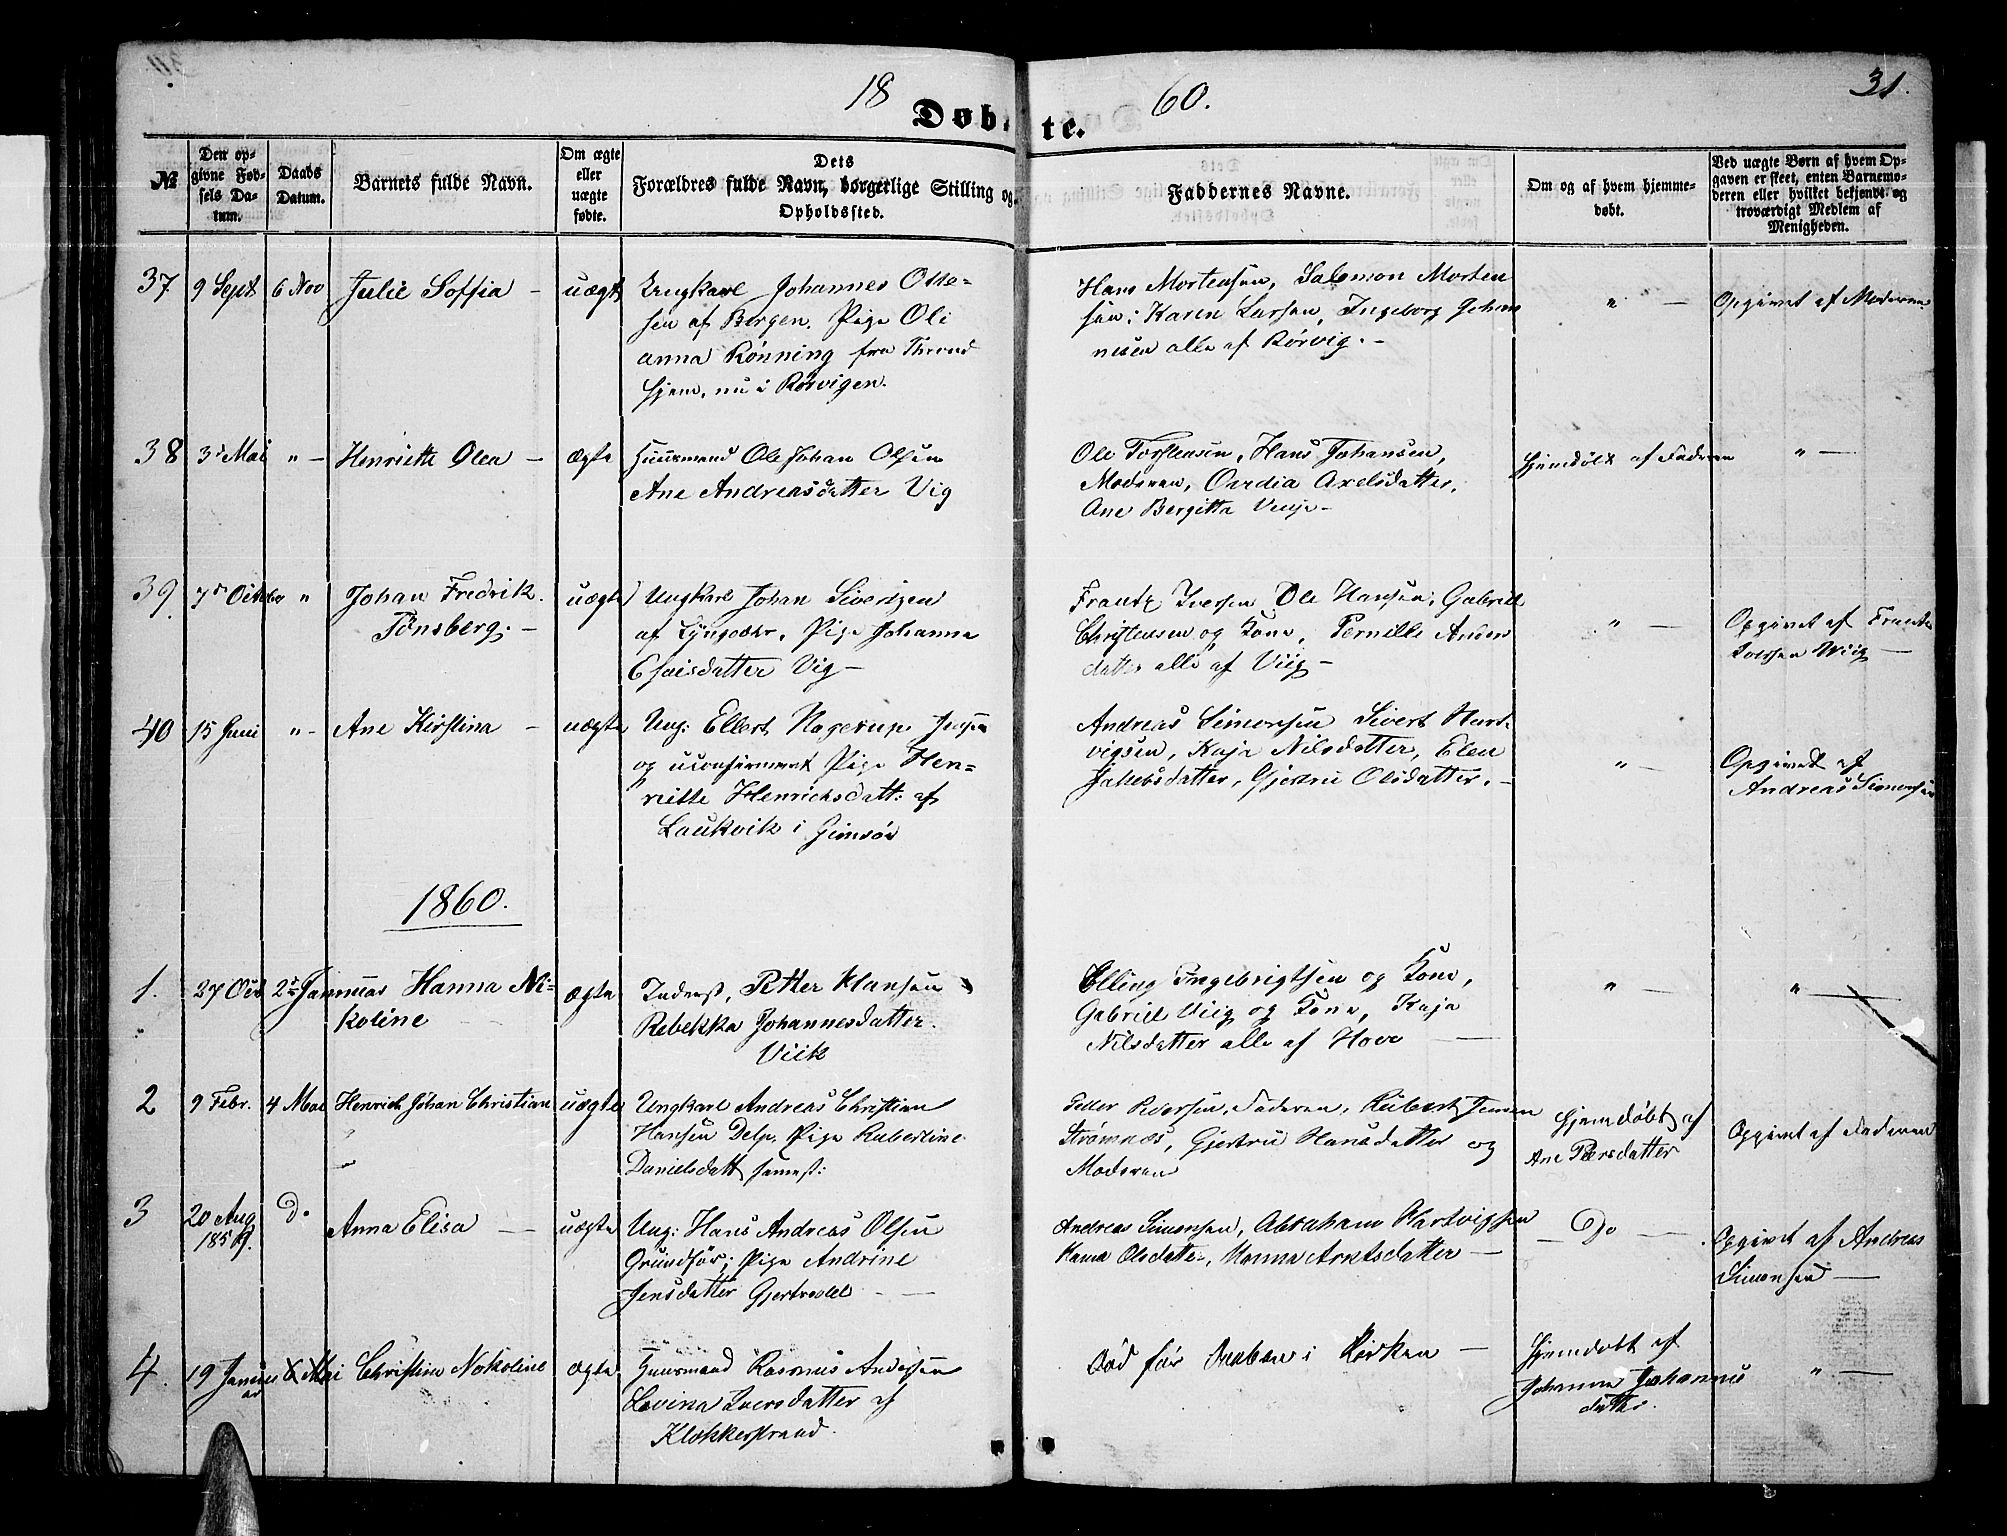 18 60. 31.
Døbte.
№
Den opgivne Fødsels Datum.
Daabs Datum.
Barnets fulde Navn.
Om ægte eller uægte fødte.
Dets Forældres fulde Navn, borgerlige Stilling og Opholdssted.
Faddernes Navne.
Om og af hvem hjemmedøbt.
Ved uægte Børn af hvem Opgaven er skeet, enten Barnemoderen eller hvilket bekjendt og troværdigt Medlem af Menigheden.
37 9 Sept 6 Nov Julie Soffia – uægt Ungkarl Johannes Otte=
sen af Bergen. Pige Oli
anna Rønning fra Thrond
hjem, nu i Rørvigen.
Hans Mortensen, Salomon Morten
sen: Karen Larsen, Ingeborg Johan
nesen alle af Rørvig. –
" – Opgivet af Moderen
38 3d Mai " – Henriette Olea – ægte Huusmand Ole Johan Olsen
Ane Andreasdatter Vig
Ole Torstensen, Hans Johansen,
Moderen, Axelsdatter,
Ane Bergitta
Hjemdøbt af Faderen " –
39. 7d Octobr " Johan Fredrik
Tønsberg. –
uægte Ungkarl Johan Sivertsen
af Lyngvær, Pige Johanna
Esaisdatter Vig –
Frantz Iversen Ole Hansen, Gabriel
Christensen og Kone, Pernille Anders
datter alle af Viig –
" – Opgivet af Frantz
Iversen Wiig –
40 15 Juni " – Ane Kirstina – uægte Ung: Ellert Hagerup
og uconfirmeret Pige Hen=
riette Henrichsdatt: af
Laukvik i Gimsø
Andreas Simonsen Sivert Hart
vigsen, Kaja Nilsdatter, Elen
Jakobsdatter, Gjertru Olsdatter. –
" – Opgivet af
Andreas Simonsen
1860.
1. 27 Oct 2d Januar Hanna Ni=
koline
ægte Inderst, Petter Hansen
Rebekka Johannesdatter.
Viik
Elling Ingebrigtsen og Kone,
Gabriel Viig og Kone, Kaja
Nilsdatter alle af Hove –
" – " –
2 9 Febr. 4 Mai Henrich Johan Christian uægte Ungkarl Andreas Christian
Hansen Delp, Pige Rubertine
Danielsdatt samest:
Petter Pedersen, Faderen, Rubert Jensen
Strømnæs, Gjertru Hansdatter og
Moderen
Hjemdøbt af
Ane Pedersdatter
Opgivet af Faderen
3 20 Aug
1859. Do Anna Elisa – uægte Ung: Hans Andreas Olsen
Grundfør; Pige Andrine
Jensdatter
Andreas Simonsen, Abraham Hartvigsen
Olsdatter, Hanna Arntsdatter –
– Do – Opgivet af Andreas
Simonsen –
4. 19 Janu
ar Mai Christine Nikoline ægte Huusmand Rasmus Andersen
Lovina Iversdatter af
Klokkerstrand.
Død før Daaben i Kirken –
Hjemdøbt af
Johanna Johannes
datter.
" –